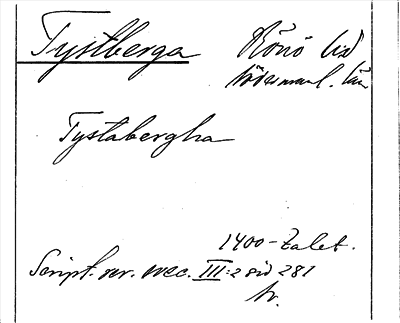 Tystberga Rönö hd
Södermanl. län
Tystabergha
1400-talet.
Script. rer. svec. III:2 sid 281